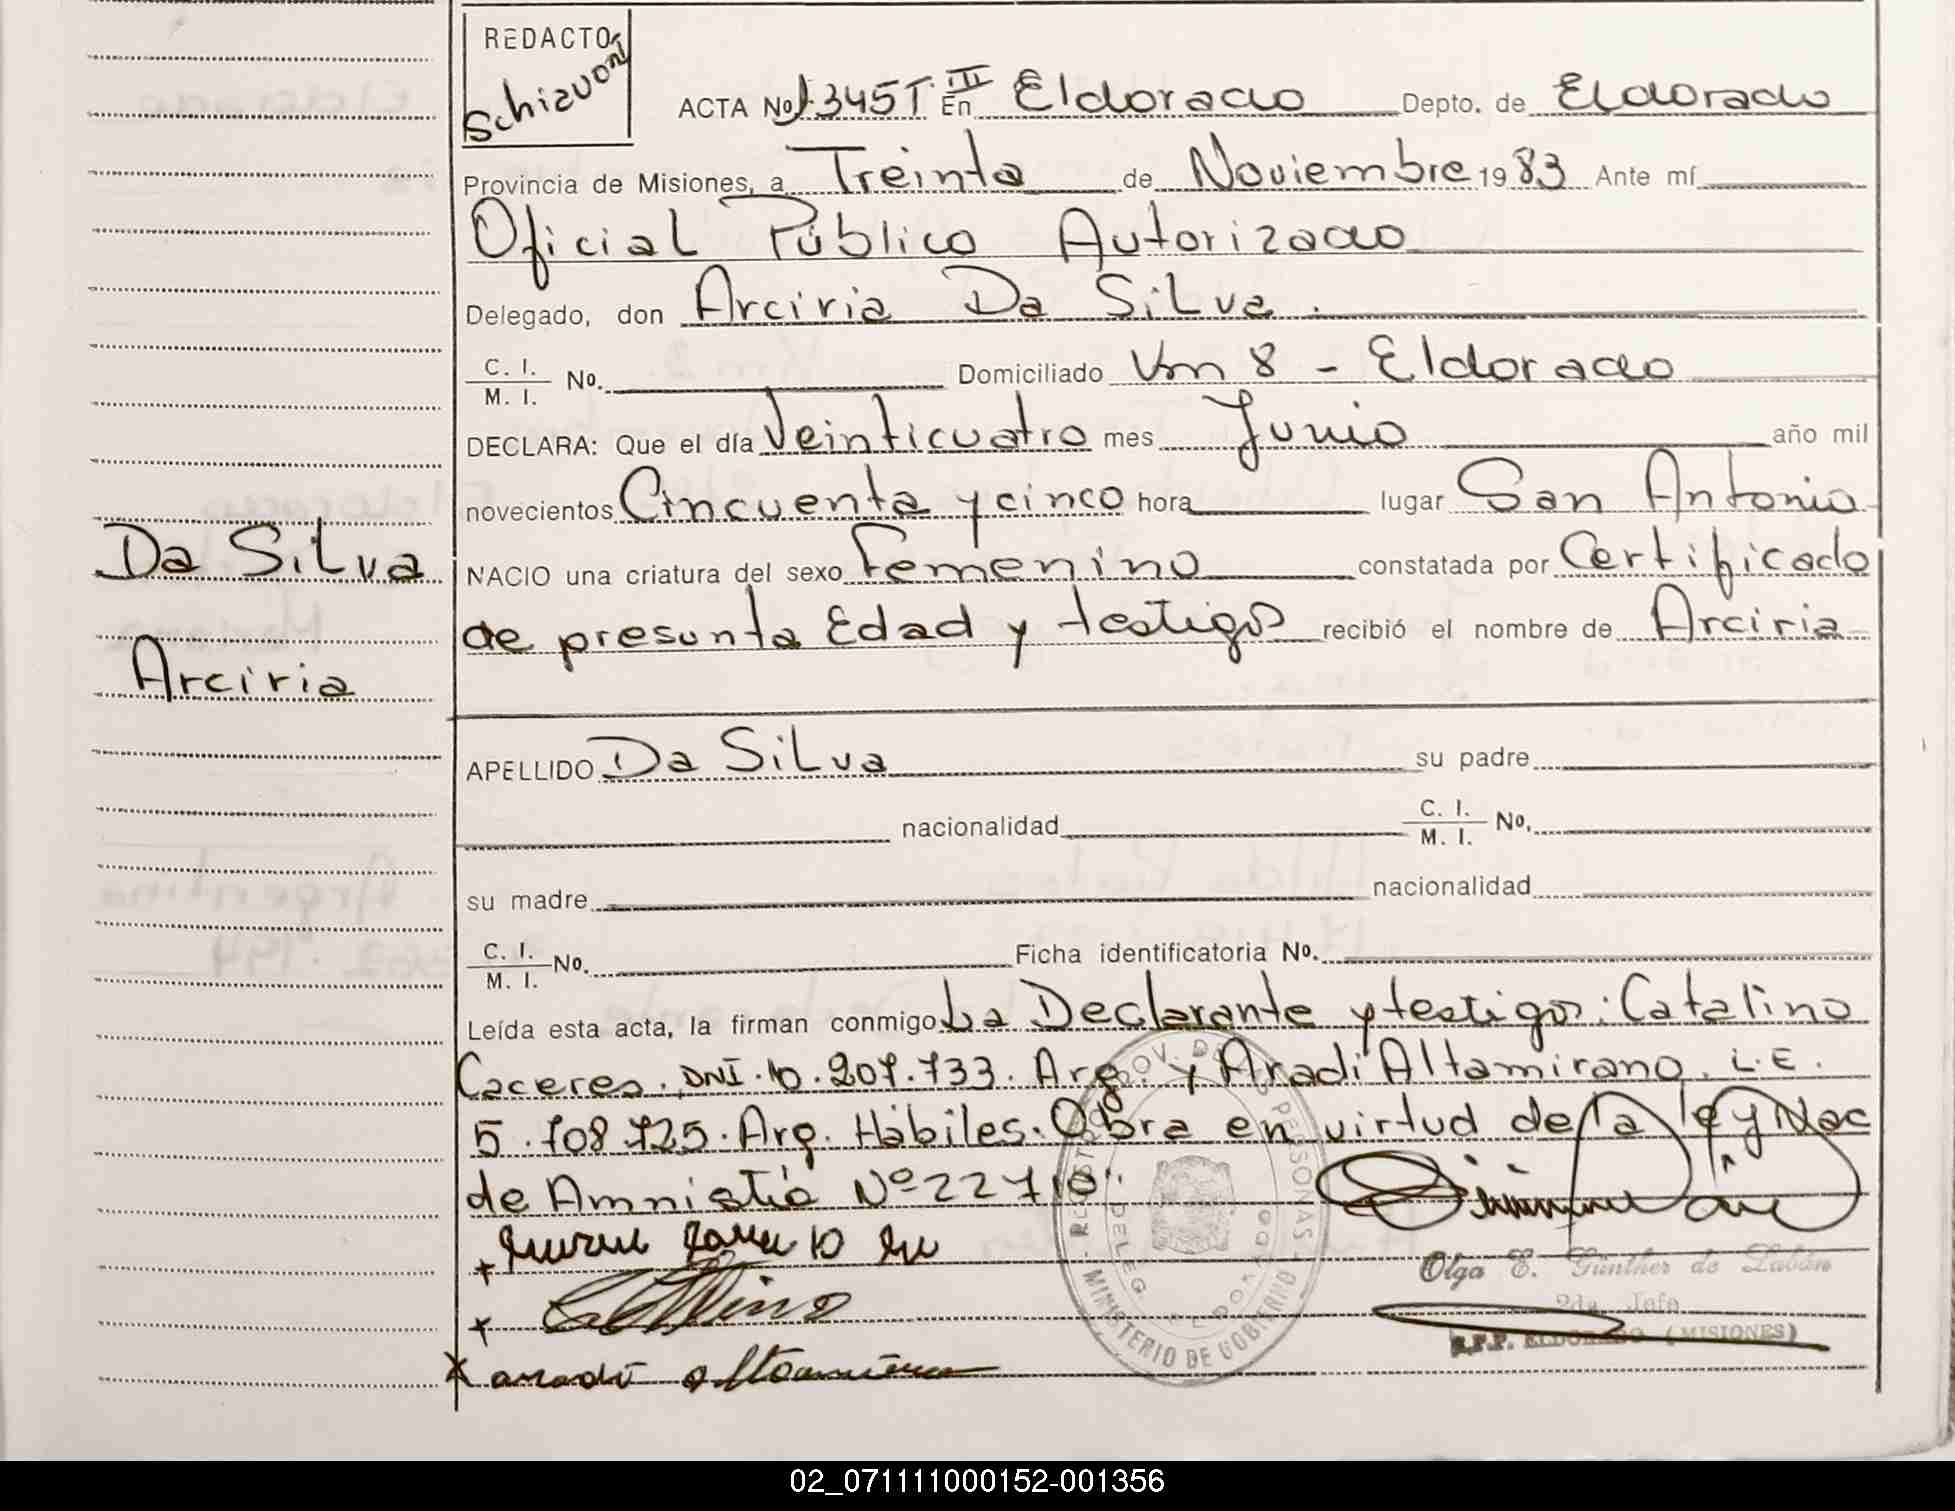 REDACTO
Schiavoni
ACTA Nº 1345 T. III En Eldorado Depto. de Eldorado
Provincia de Misiones, a Treinta de Noviembre 1983 Ante mí
Oficial Público Autorizado
Delegado, don Arciria Da Silva.
C. I.
M. I. Nº. Domiciliado Km 8 - Eldorado
DECLARA: Que el día Veinticuatro mes Junio año mil
novecientos Cincuenta y cinco hora lugar San Antonio
Da Silva
NACIO una criatura del sexo Femenino constatada por Certificado
de presunta Edad y testigos recibió el nombre de Arciria
Arciria
APELLIDO Da Silva su padre
nacionalidad C. I.
M. I. Nº.
su madre nacionalidad
C. I.
M. I. Nº. Ficha identificatoria Nº.
Leída esta acta, la firman conmigo La Declarante y testigos: Catalino
Caceres. DNI. 10.207.733. Arg. y Aradi Altamirano. L.E.
5.708.725. Arg. Hábiles. Obra en virtud de la ley Nac
de Amnistía Nº 22710.
Catalino
aradi altamirano
Olga E. Günther de Labán
2da. Jefa
R.P.P. ELDORADO (MISIONES)
MINISTERIO DE GOBIERNO
02_071111000152-001356